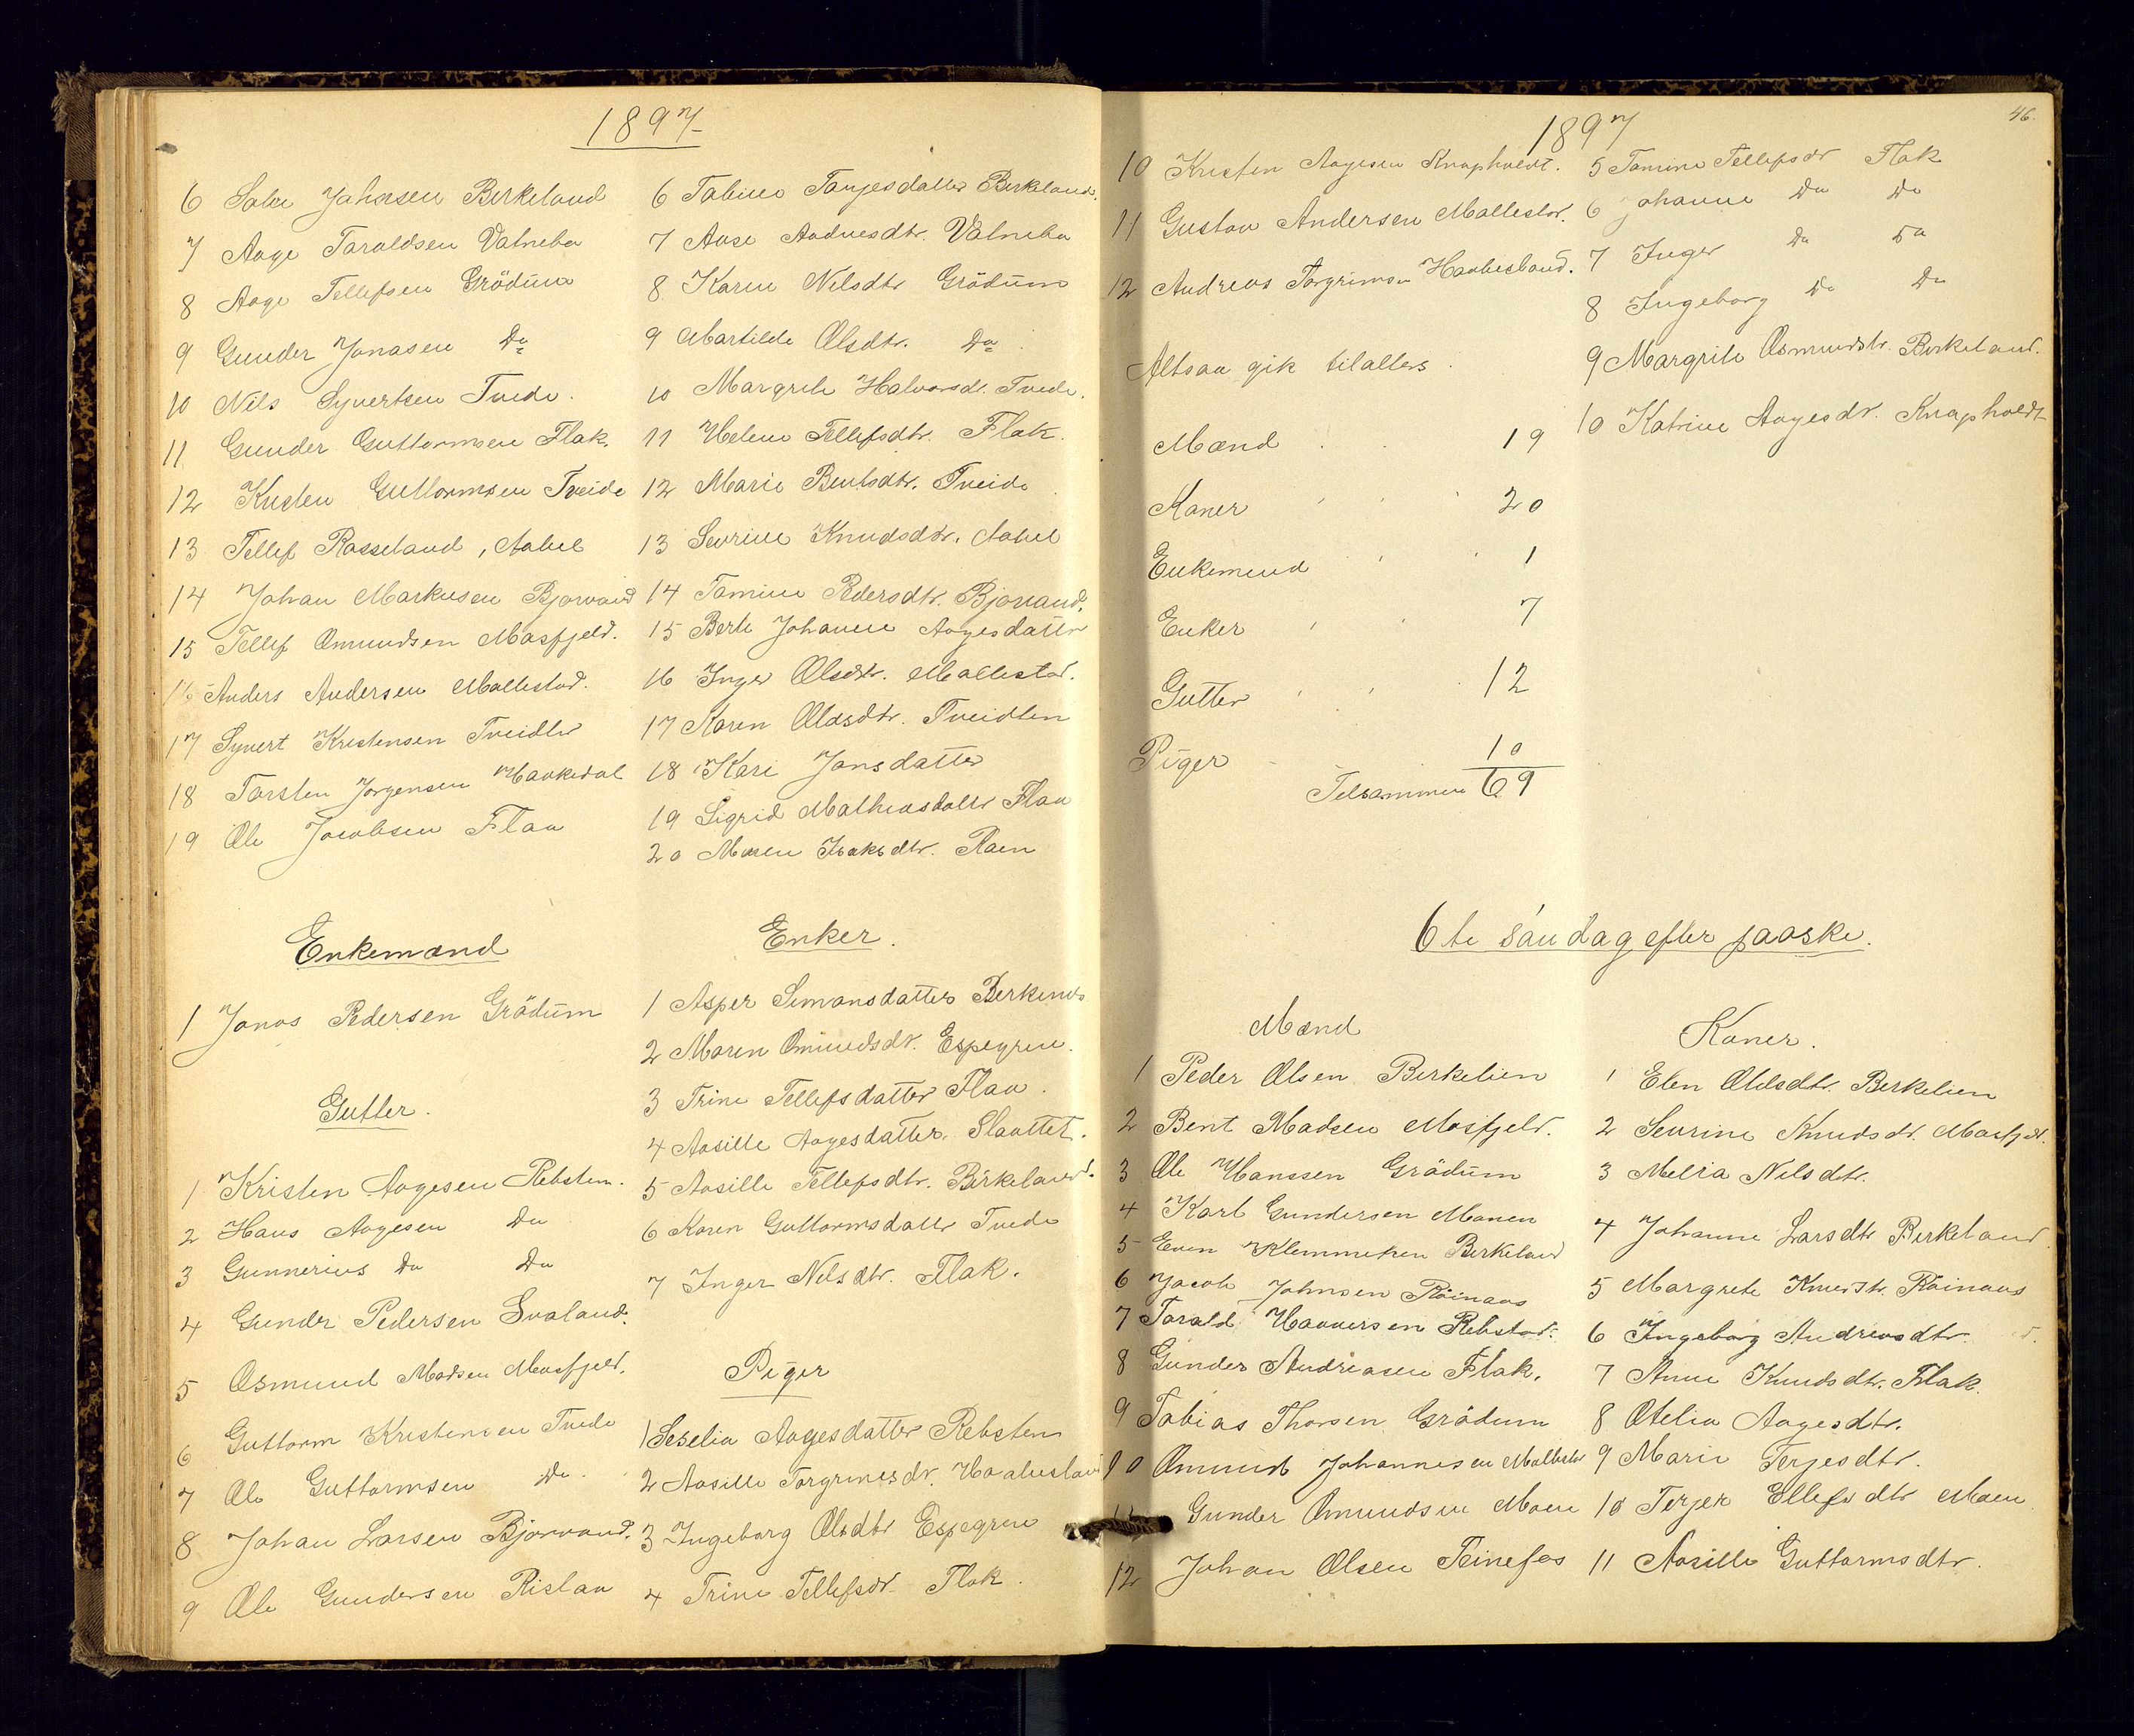 1897
6 Salve Johnsen Birkeland
7 Aage Taraldsen Vatnebu
8 Aage Tellefsen Grödum
9 Gunder Jonasen Do
10 Nils Syvertsen Tvede.
11 Gunder Guttormsen Flak.
12 Kristen Guttormsen Tveide
13 Tellef Rosseland, Aabel
14 Johan Markusen Bjorvand
15 Tellef Omundsen Mosfjeld.
16 Anders Andersen Mollestad.
17 Syvert Kristensen Tveidte
18 Torsten Jorgensen Haukedal
19 Ole Jacobsen Flaa
Enkemænd
1 Jonas Pedersen Grödum
Gutter.
1 Kristen Aagesen Rebsten.
2 Hans Aagesen Do
3 Gunnerius Do Do
4 Gunder Pedersen Svaland.
5 Osmund Madsen Mosfjeld.
6 Guttorm Kristensen Tvede
7 Ole Guttormsen Do.
8 Johan Larsen Bjorvand.
9 Ole Gundersen Rislaa
6 Tabine Tarjesdatter Birkeland.
7 Aase Aadnesdtr. Vatnebu
8 Karen Nilsdtr Grödum
9 Martilde Olsdtr. Do
10 Margrete Halvorsdt. Tvede.
11 Helene Tellefsdtr. Flak.
12 Marie Bentsdtr. Tveide
13 Sevrine Knudsdtr. Aabel
14 Tomine Pedersdtr. Bjorvand.
15 Berte Johanne Aagesdatter
16 Inger Olsdtr. Mollestad.
17 Karen Olasdtr. Tveidten
18 Kari Jonsdatter
19 Sigrid Mathiasdatter Flaa
20 Maren Isaksdtr. Raen
Enker.
1 Asper Simonsdatter
2 Maren Omundsdr. Espegren.
3 Trine Tellefsdatter Flaa.
4 Aasille Aagesdatter. Slaattet.
5 Aasille Tellefsdtr. Birkeland.
6 Karen Guttormsdatter Tvede
7 Inger Nilsdtr. Flak.
Piger
1 Seselia Aagesdatter Rebsten
2 Aasille Torgrimsdr.
3 Ingeborg Olsdtr Espegren
4 Trine Tellefsdr. Flak.
46.
1897
10 Kristen Aagesen Knapholdt.
11 Gustav Andersen Mollestad.
12 Andreas Torgrimsen Haabesland.
Altsaa gik tilalters.
Mænd 19
Koner 20
Enkemænd 1
Enker 7
Gutter 12
Piger 10
Tilsammen 69
5 Tomine Tellefsdr Flak
6 Johanne Do Do
7 Inger Do Do
8 Ingeborg Do Do
9 Margrite Osmundsdtr. Birkeland.
10 Katrine Aagesdr. Knapholdt
6te sóndag efter paaske.
Mænd
1 Peder Olsen Birkelien
2 Bent Madsen Mosfjeld.
3 Ole Hanssen Grödum
4 Karl Gundersen Monen
5 Even Klemmetsen Birkeland
6 Jacob Johnsen Röinaas
7 Torald Haaversen Rebstad.
8 Gunder Andreasen Flak.
9 Tobias Thorsen Grödum
10 Omund Johannesen Mollestad
11 Gunder Omundsen Moen
12 Johan Olsen Teinefos
Koner.
1 Elen Olsdtr. Birkelien
2 Sevrine Knudsdt. Mosfjeld.
3 Melia Nilsdtr.
4 Johanne Larsdtr Birkeland
5 Margrete Knudsdtr. Röinaas
6 Ingeborg Andreasdtr.
7 Anne Knudsdtr. Flak.
8 Otelia Aagesdtr.
9 Marie Terjesdtr.
10 Terjer Ellefsdtr Moen
11 Aasille Guttormsdtr.